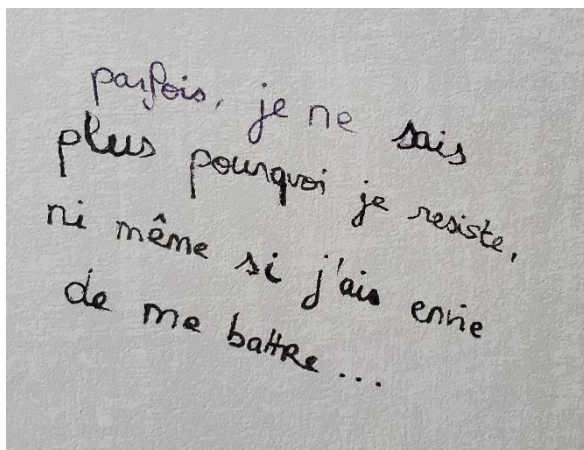 parfois, je ne sais
plus pourquoi je resiste,
ni même si j'ais envie
de me battre...